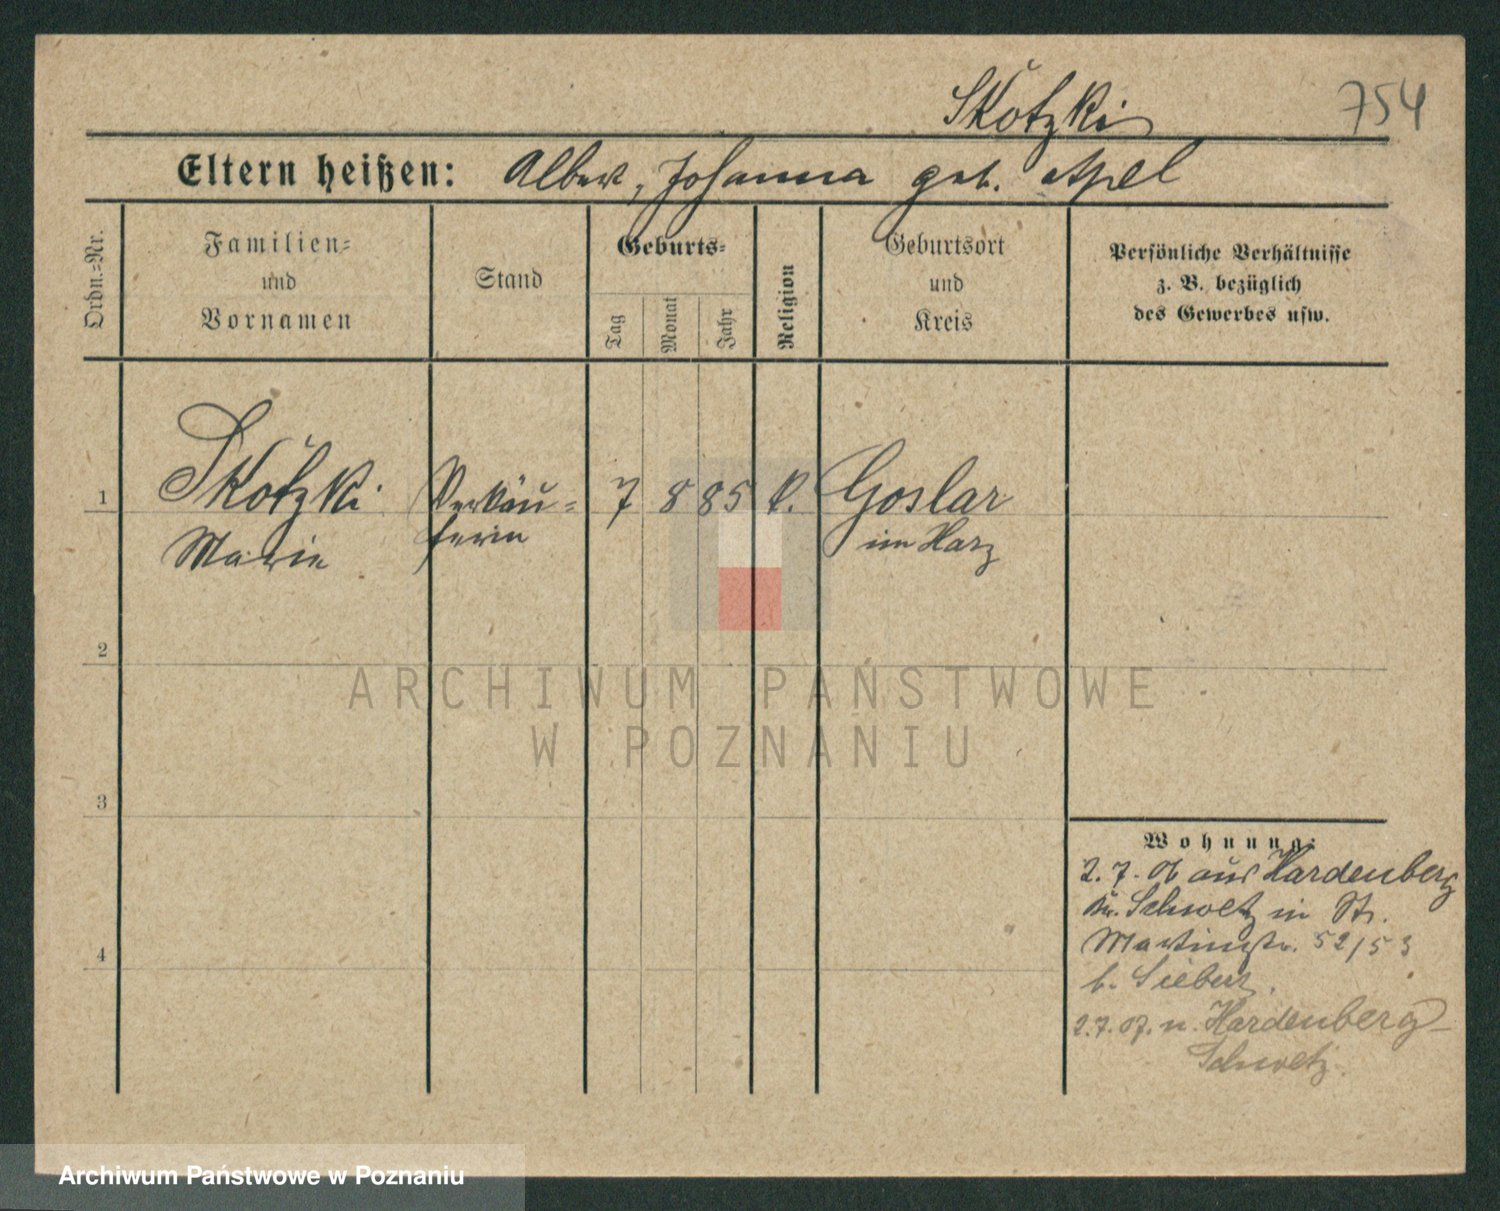 Skotzki 754
Eltern heißen: Albert, Johanna geb. Apel
Ordn.=Nr.
Familien=
und
Vornamen
Stand
Geburts=
Tag
Monat
Jahr
Religion
Geburtsort
und
Kreis
Persönliche Verhältnisse
z. B. bezüglich
des Gewerbes usw.
1 Skotzki Verkäu= 7 8 85 k. Goslar
Marie ferin im Harz
2
3
4
Wohnung:
2. 7. 06 aus Hardenberg
Kr. Schwetz in St.
Martinstr. 52/53
b. Siebert.
2.7.07. n. Hardenberg
Schwetz.
ARCHIWUM PAŃSTWOWE
W POZNANIU
Archiwum Państwowe w Poznaniu